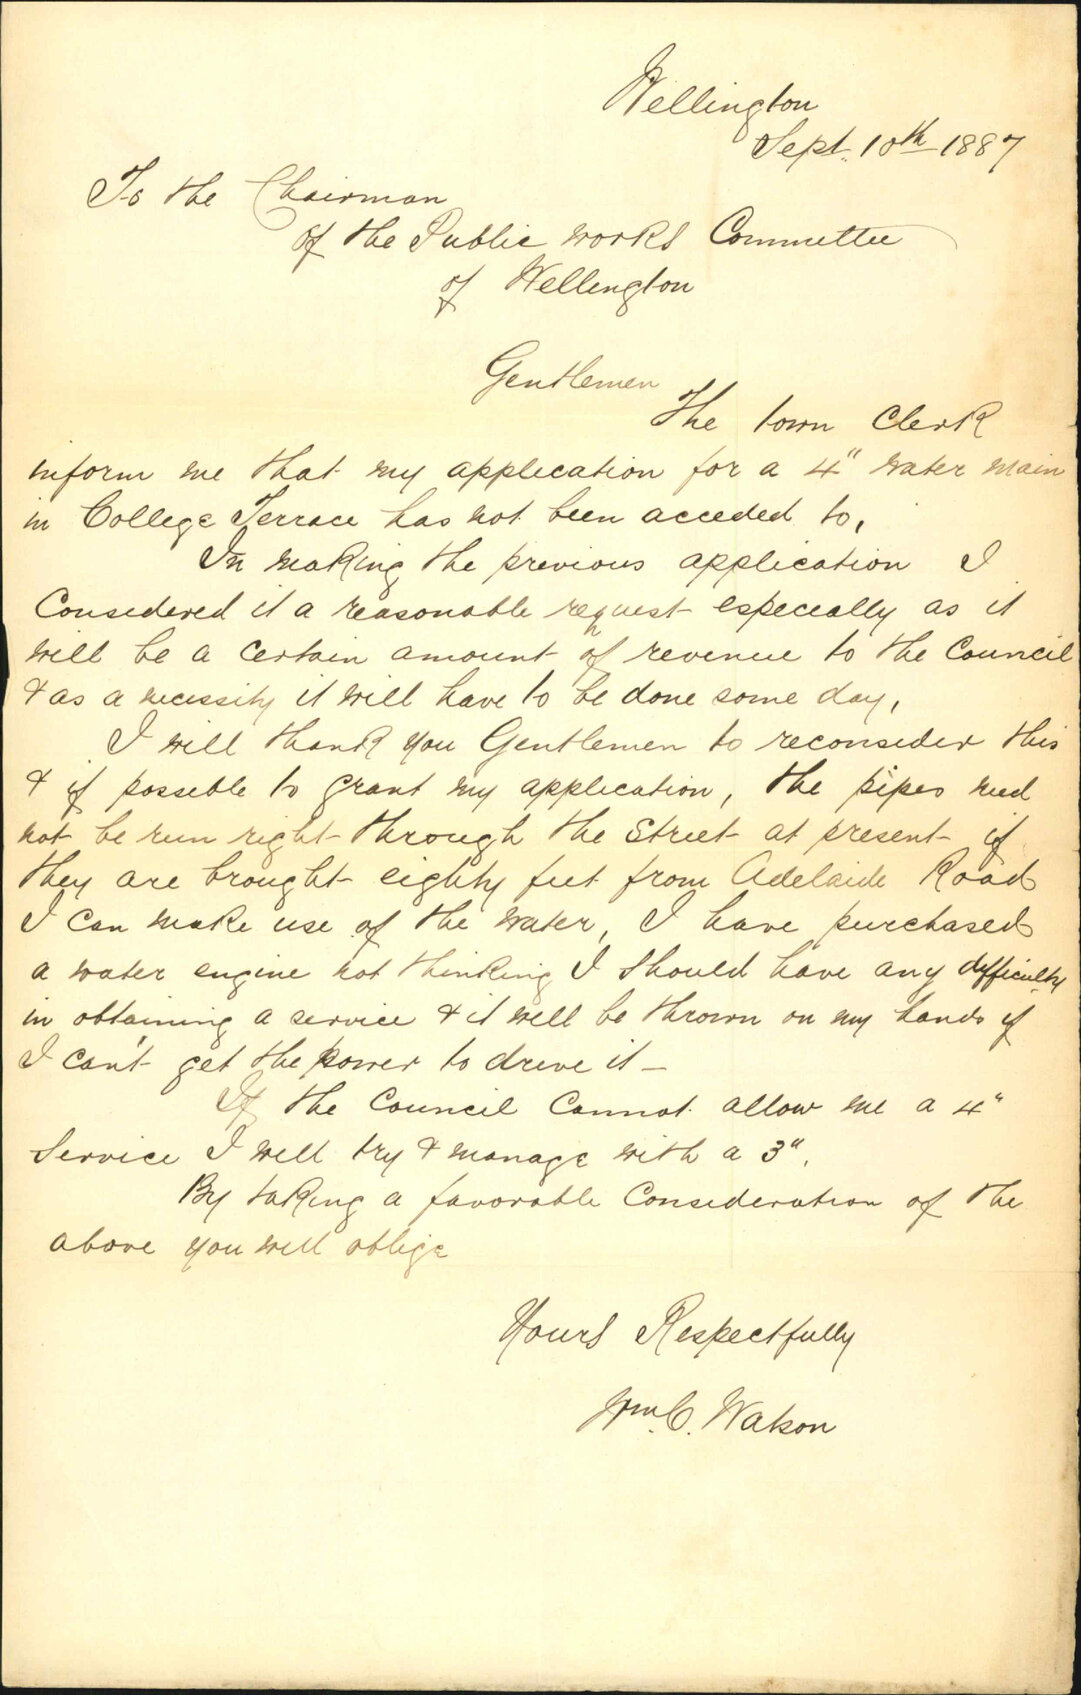 Wellington
Sept. 10th 1887
To the Chairman
of the Public Works Committee
of Wellington
Gentlemen
The town Clerk
inform me that my application for a 4" water main
in College Terrace has not been acceded to,
In making the previous application I
Considered it a reasonable request especially as it
will be a certain amount of revenue to the Council
& as a necessity it will have to be done some day,
I will thank you Gentlemen to reconsider this
& if possible to grant my application, the pipes need
not be run right through the Street at present if
they are brought eighty feet from Adelaide Road
I can make use of the water, I have purchased
a water engine not thinking I should have any difficulty
in obtaining a service & it will be thrown on my hands if
I can't get the power to drive it —
If the Council Cannot allow me a 4"
Service I will try & manage with a 3".
By taking a favorable Consideration of the
above you will oblige
Yours Respectfully
Wm. C. Watson